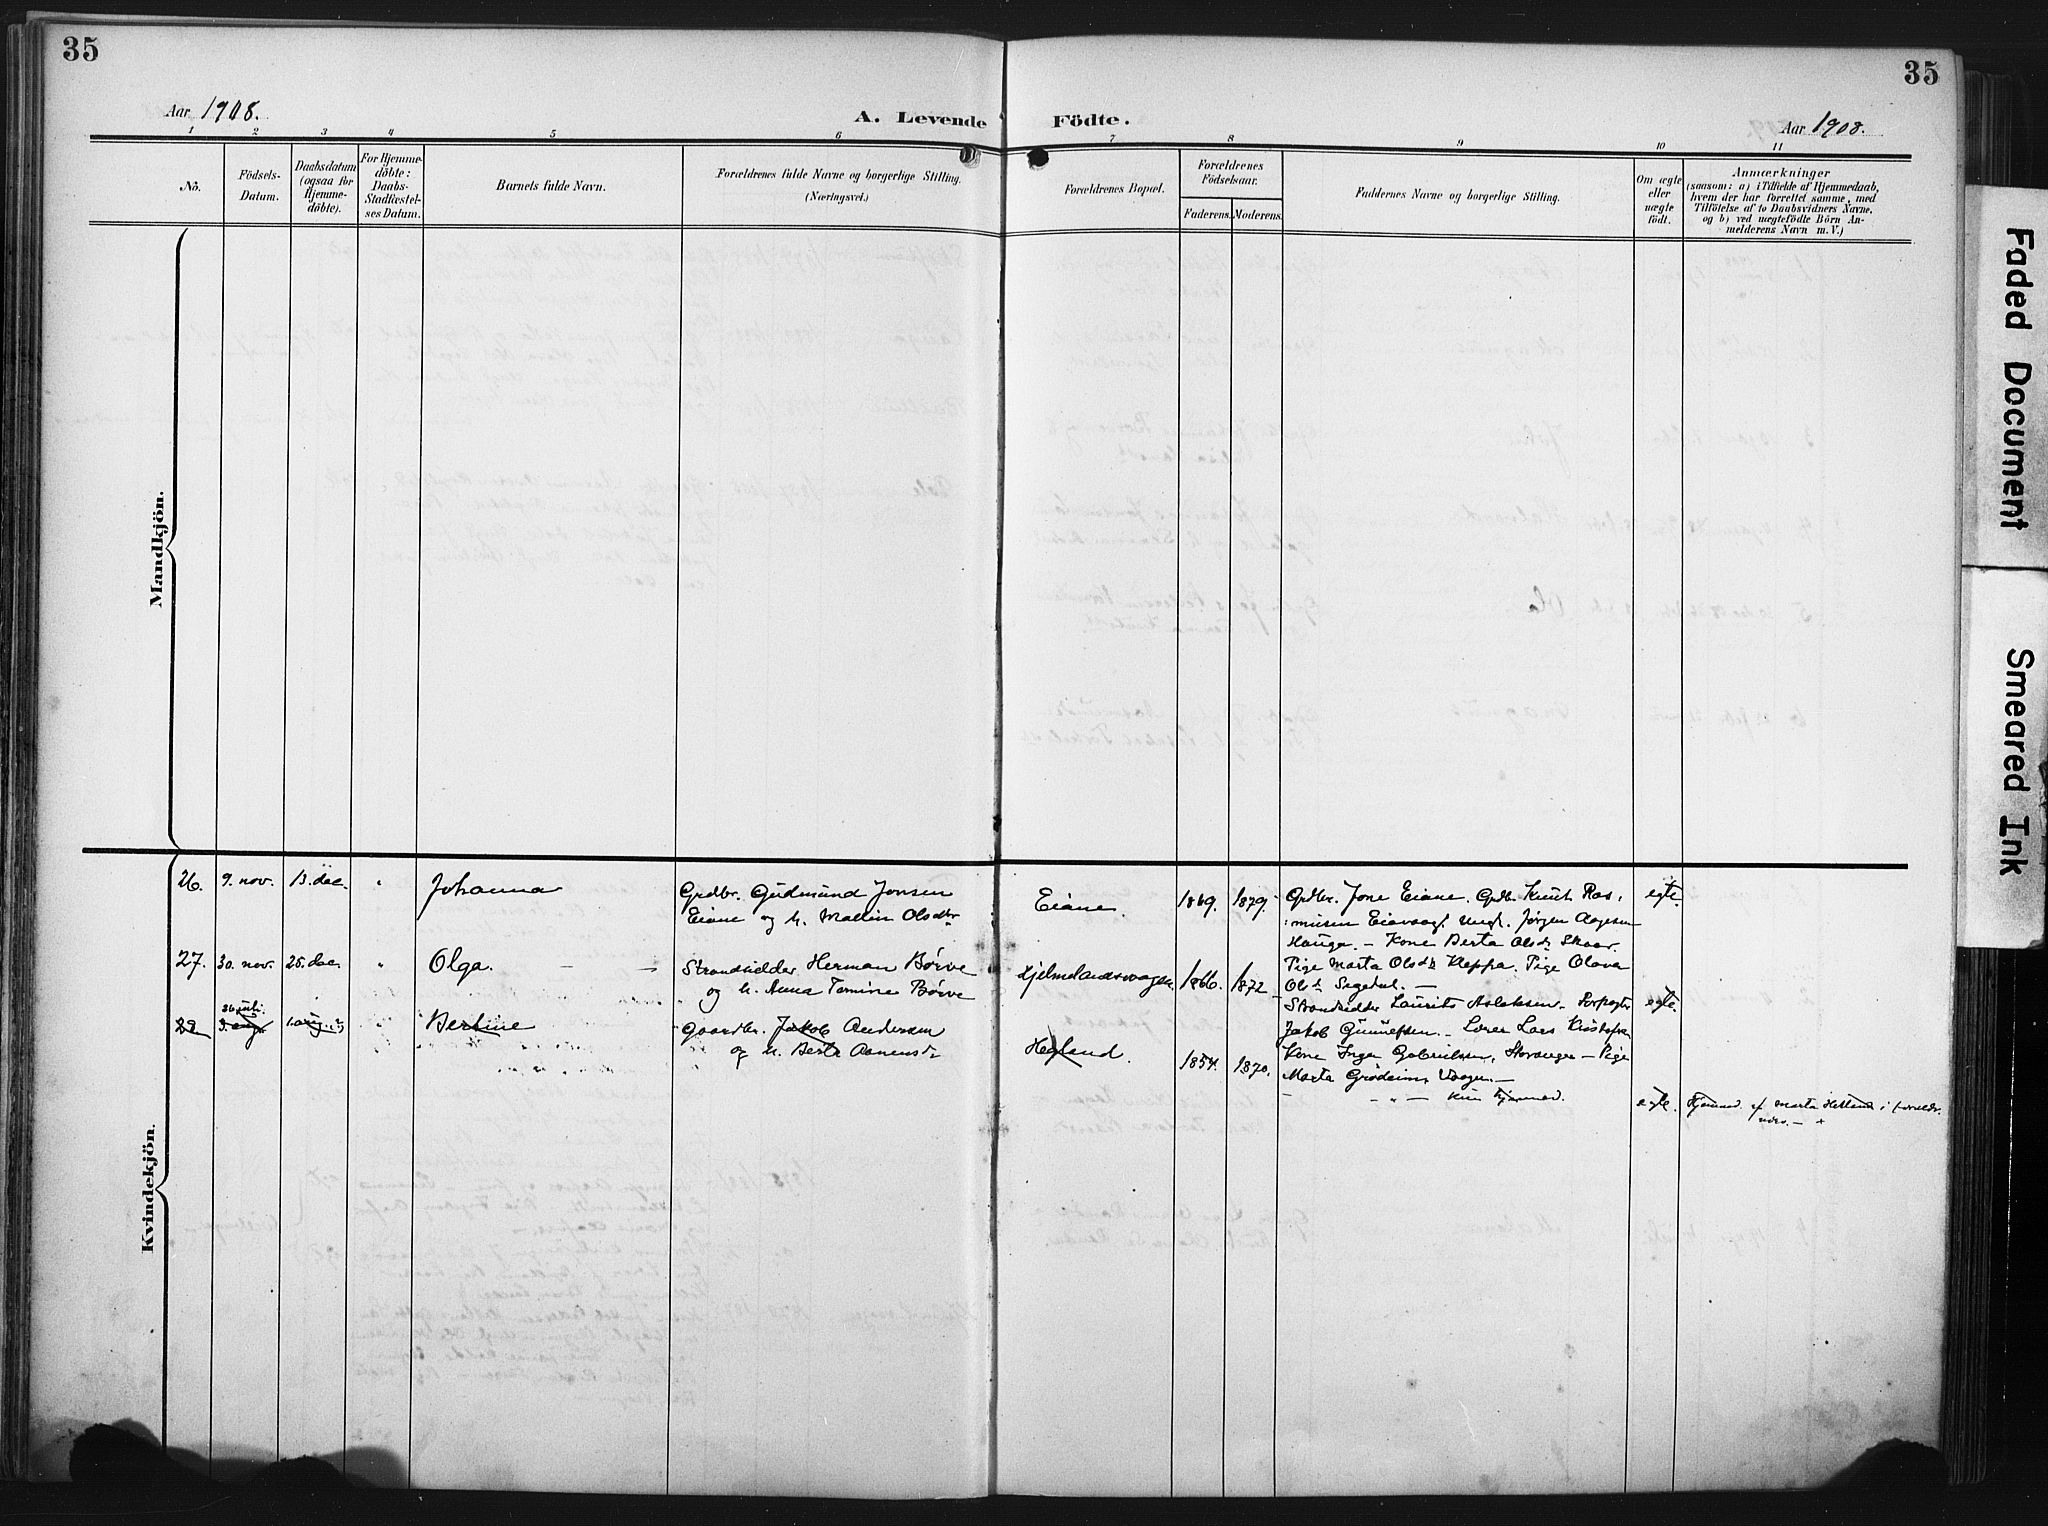 35
35
Aar 1908.
A. Levende Födte.
Aar 1908.
1 2 3 4 5 6 7 8 9 10 11
Nô.
Födsels-
Datum.
Daabsdatum
(ogsaa for
Hjemme-
döbte).
For Hjemme-
döbte:
Daabs-
Stadfæstel-
ses Datum.
Barnets fulde Navn.
Forældrenes fulde Navne og borgerlige Stilling.
(Næringsvei.)
Forældrenes Bopæl.
Forældrenes
Födselsaar.
Faderens.
Moderens.
Faddernes Navne og borgerlige Stilling.
Om ægte
eller
uægte
födt.
Anmærkninger
(saasom: a) i Tilfælde af Hjemmedaab,
hvem der har forrettet samme, med
Tilföielse af to Daabsvidners Navne,
og b) ved uægtefödte Börn An-
melderens Navn m. V.)
Mandkjön.
Kvindekjön.
26. 9. nov. 13. dec. " Johanna
Grdbr. Gudmund Jonsen
Eiane og h. Mallin Olsdtr
Eiane. 1869. 1879.
Grdbr. Jone Eiane. Grdbr. Knut Ras-
musen Eievaag. Ungk. Jørgen Aagesen
Hauge. — Kone Berta Olsdtr Skaar.
Pige Marta Olsdtr Kleppa. Pige Olava
Olsdtr Segedal. —
egte.
27. 30. nov. 26. dec. " Olga.
Strandsidder Herman Börve
og h. Anna Tomine Börve
Hjelmelandsvaagen. 1866. 1872
Strandsidder Laurits Aslaksen.
Jakob Gunnersen. Lærer Lars
Kone Inga Gabrielsen, Stavanger — Pige
Marta Grödeim, Vaagen. —
egte.
28 26 juli
3. aug. 1. aug. " Bertine
Gaardbr. Jakob Andersen
og h. Berte Aanensdtr
Hegland. 1854. 1870.
— " — Kun hjemmed.
egte. Hjemmed. af Marta Hetland i foreldr.
nærv. —
Faded Document
Smeared Ink